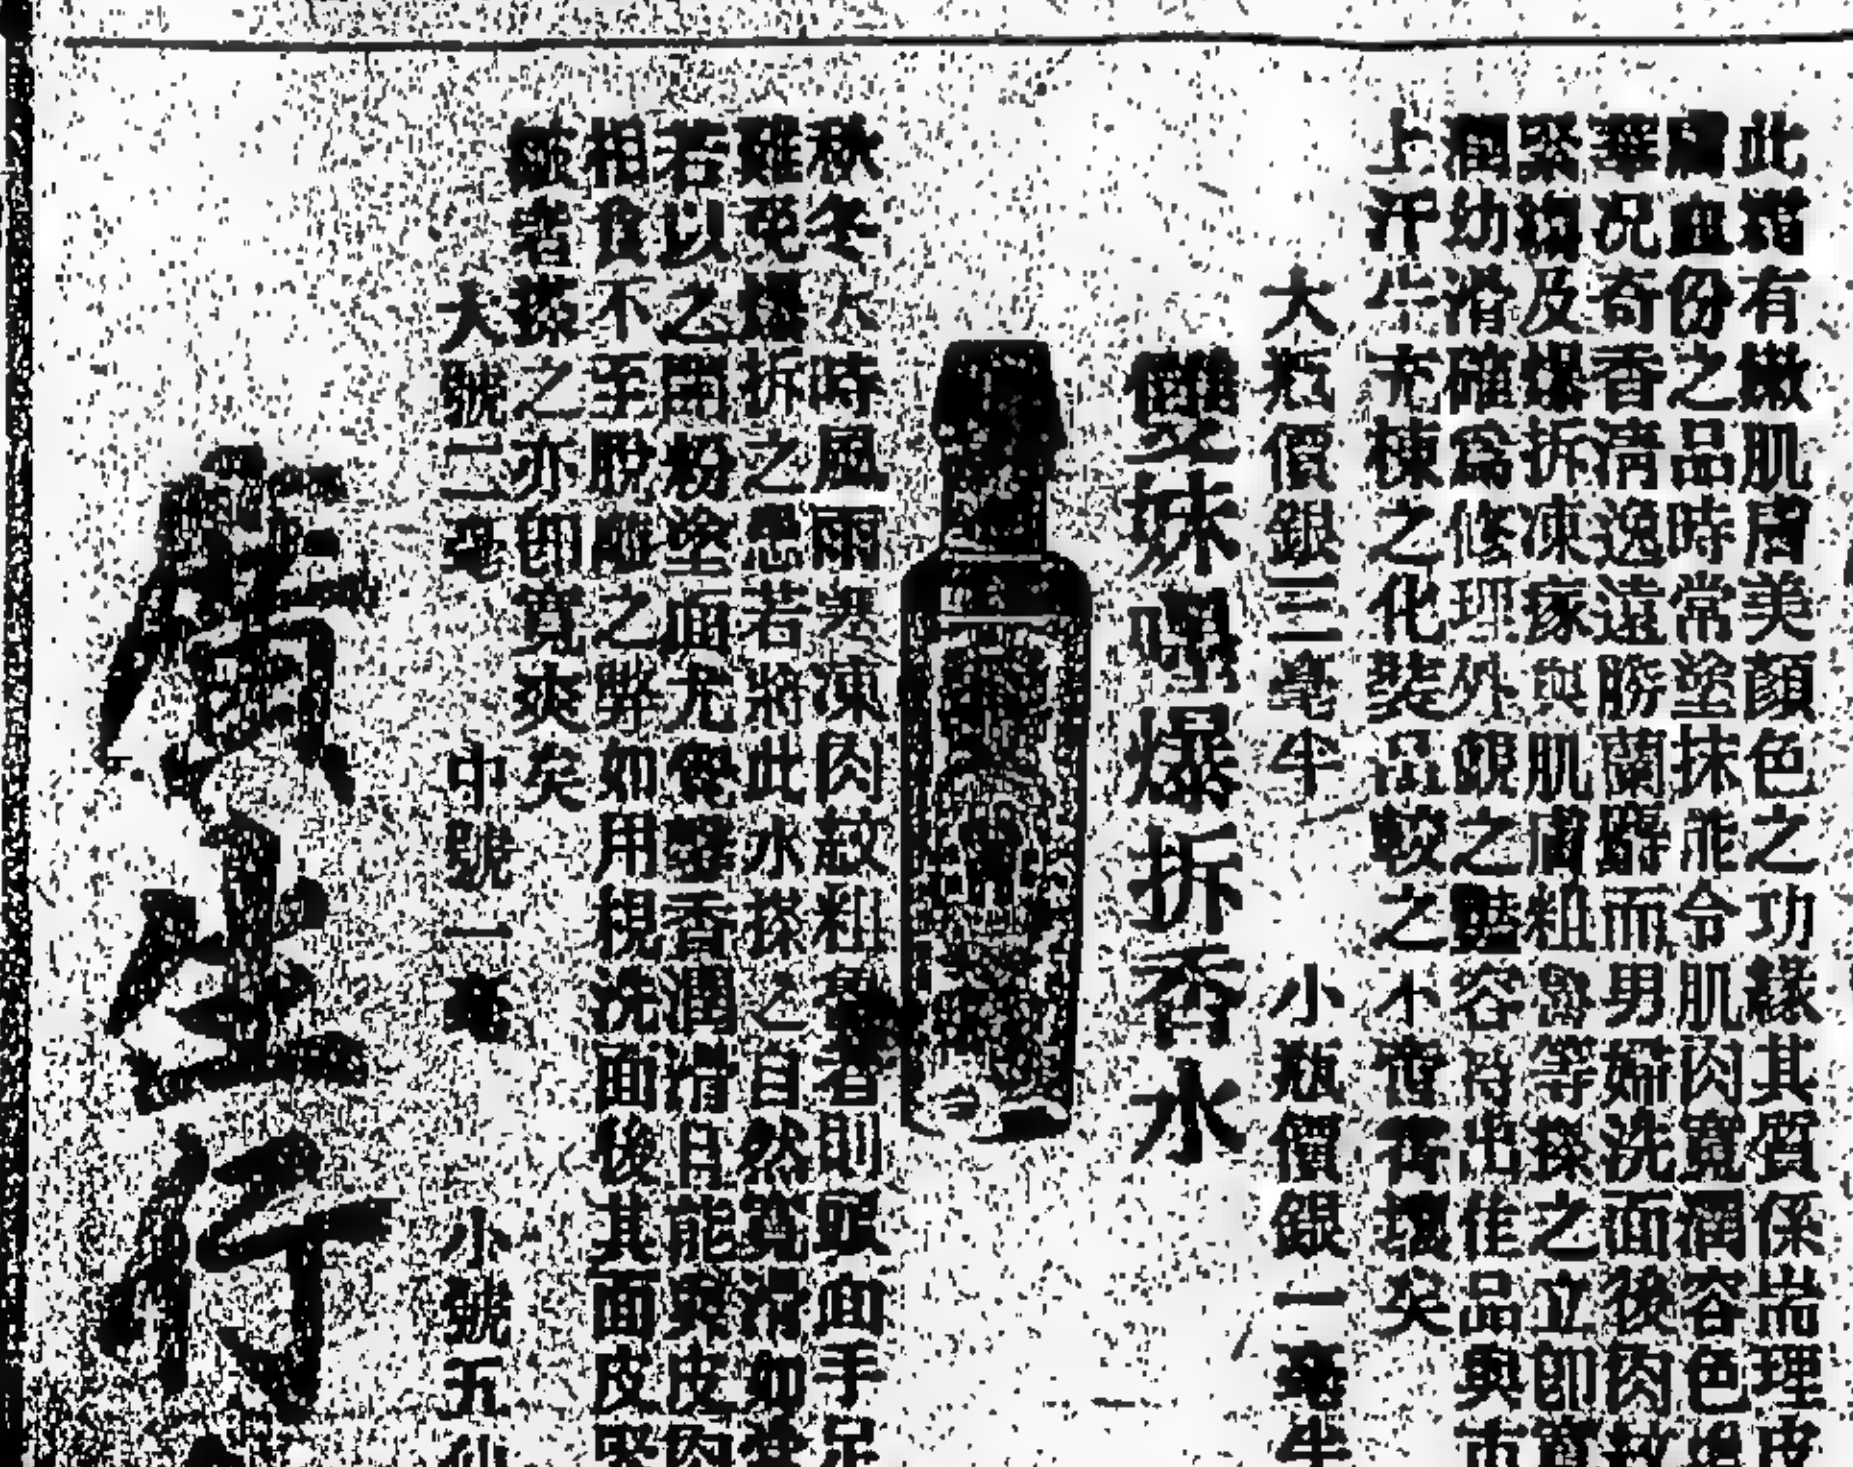 此霜有嫩肌膚美顏色之功緣其質係耑理皮
血份之品時常塗抹能令肌肉寬潤容色增
華況奇香清逸遠勝蘭麝而男婦洗面後肉紋
緊縐及爆拆凍瘃與肌膚粗魯等搽之立即寬
潤幼滑確為修理外觀之 容 出佳品與市
上汗牛充棟之化裝品較之不啻霄壤矣
大瓶價銀三毫半 小瓶價銀一毫半
雙妹嘜爆拆香水
秋冬 時風雨寒凍肉紋粗 者則頭面手足
難免爆拆之患若將此水搽之自然寬滑如
若以之開粉塗面尤 香潤滑且能與皮肉
相食不至脫離之弊如用梘洗面後其面皮緊
皺者搽之亦即寬爽矣
大號二毫 中號一毫 小號五仙
廣生行